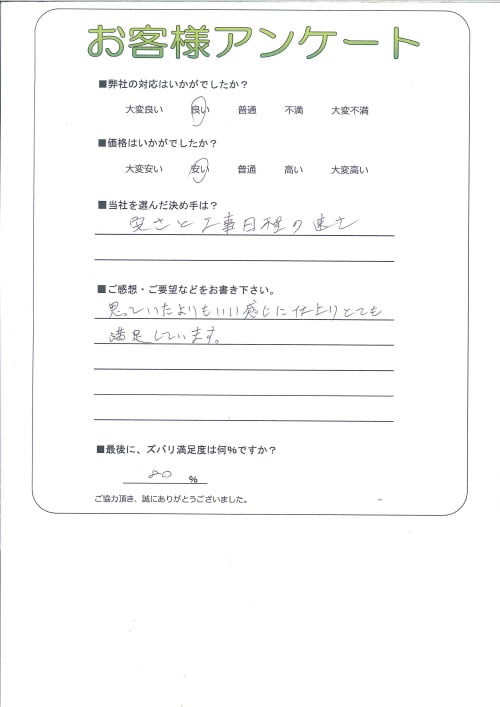 お客様アンケート
■弊社の対応はいかがでしたか？
大変良い 良い 普通 不満 大変不満
■価格はいかがでしたか？
大変安い 安い 普通 高い 大変高い
■当社を選んだ決め手は？
安さと工事日程の速さ
■ご感想・ご要望などをお書き下さい。
思っていたよりもいい感じに仕上りとても
満足しています。
■最後に、ズバリ満足度は何％ですか？
80 ％
ご協力頂き、誠にありがとうございました。